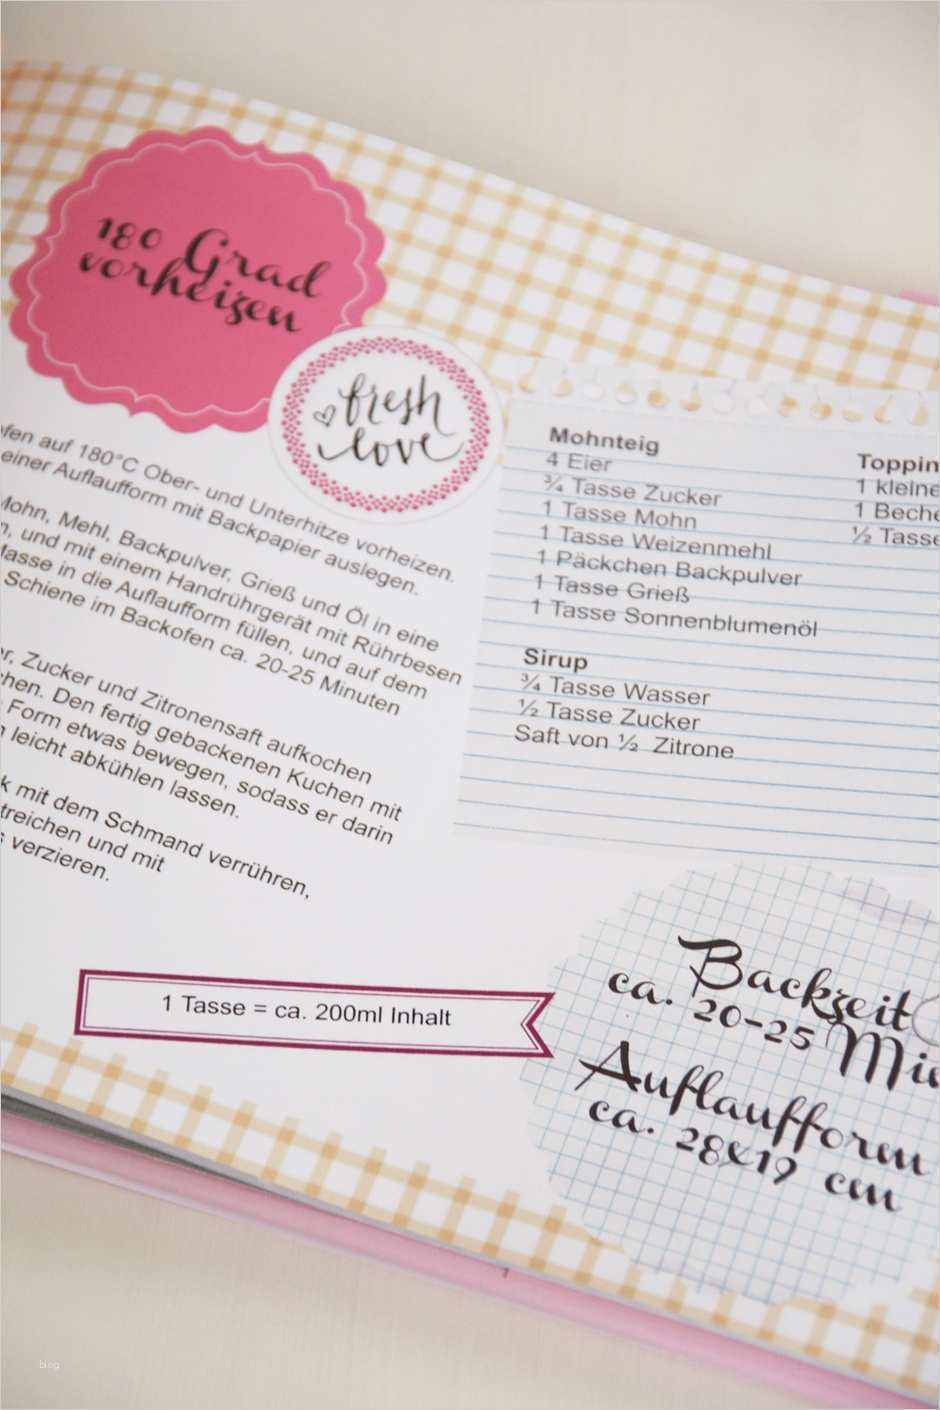 180 Grad
vorheizen
fresh
love
auf 180°C Ober- und Unterhitze vorheizen.
einer Auflaufform mit Backpapier auslegen.
Mohn, Mehl, Backpulver, Grieß und Öl in eine
und mit einem Handrührgerät mit Rührbesen
Masse in die Auflaufform füllen, und auf dem
Schiene im Backofen ca. 20-25 Minuten
Zucker und Zitronensaft aufkochen
Den fertig gebackenen Kuchen mit
Form etwas bewegen, sodass er darin
leicht abkühlen lassen.
mit dem Schmand verrühren,
und mit
verzieren.
Mohnteig
4 Eier
¾ Tasse Zucker
1 Tasse Mohn
1 Tasse Weizenmehl
1 Päckchen Backpulver
1 Tasse Grieß
1 Tasse Sonnenblumenöl
Sirup
¾ Tasse Wasser
½ Tasse Zucker
Saft von ½ Zitrone
Toppin
1 kleine
1 Beche
½ Tasse
1 Tasse = ca. 200ml Inhalt
Backzeit
ca. 20-25 Min
Auflaufform
ca. 28x19 cm
blog